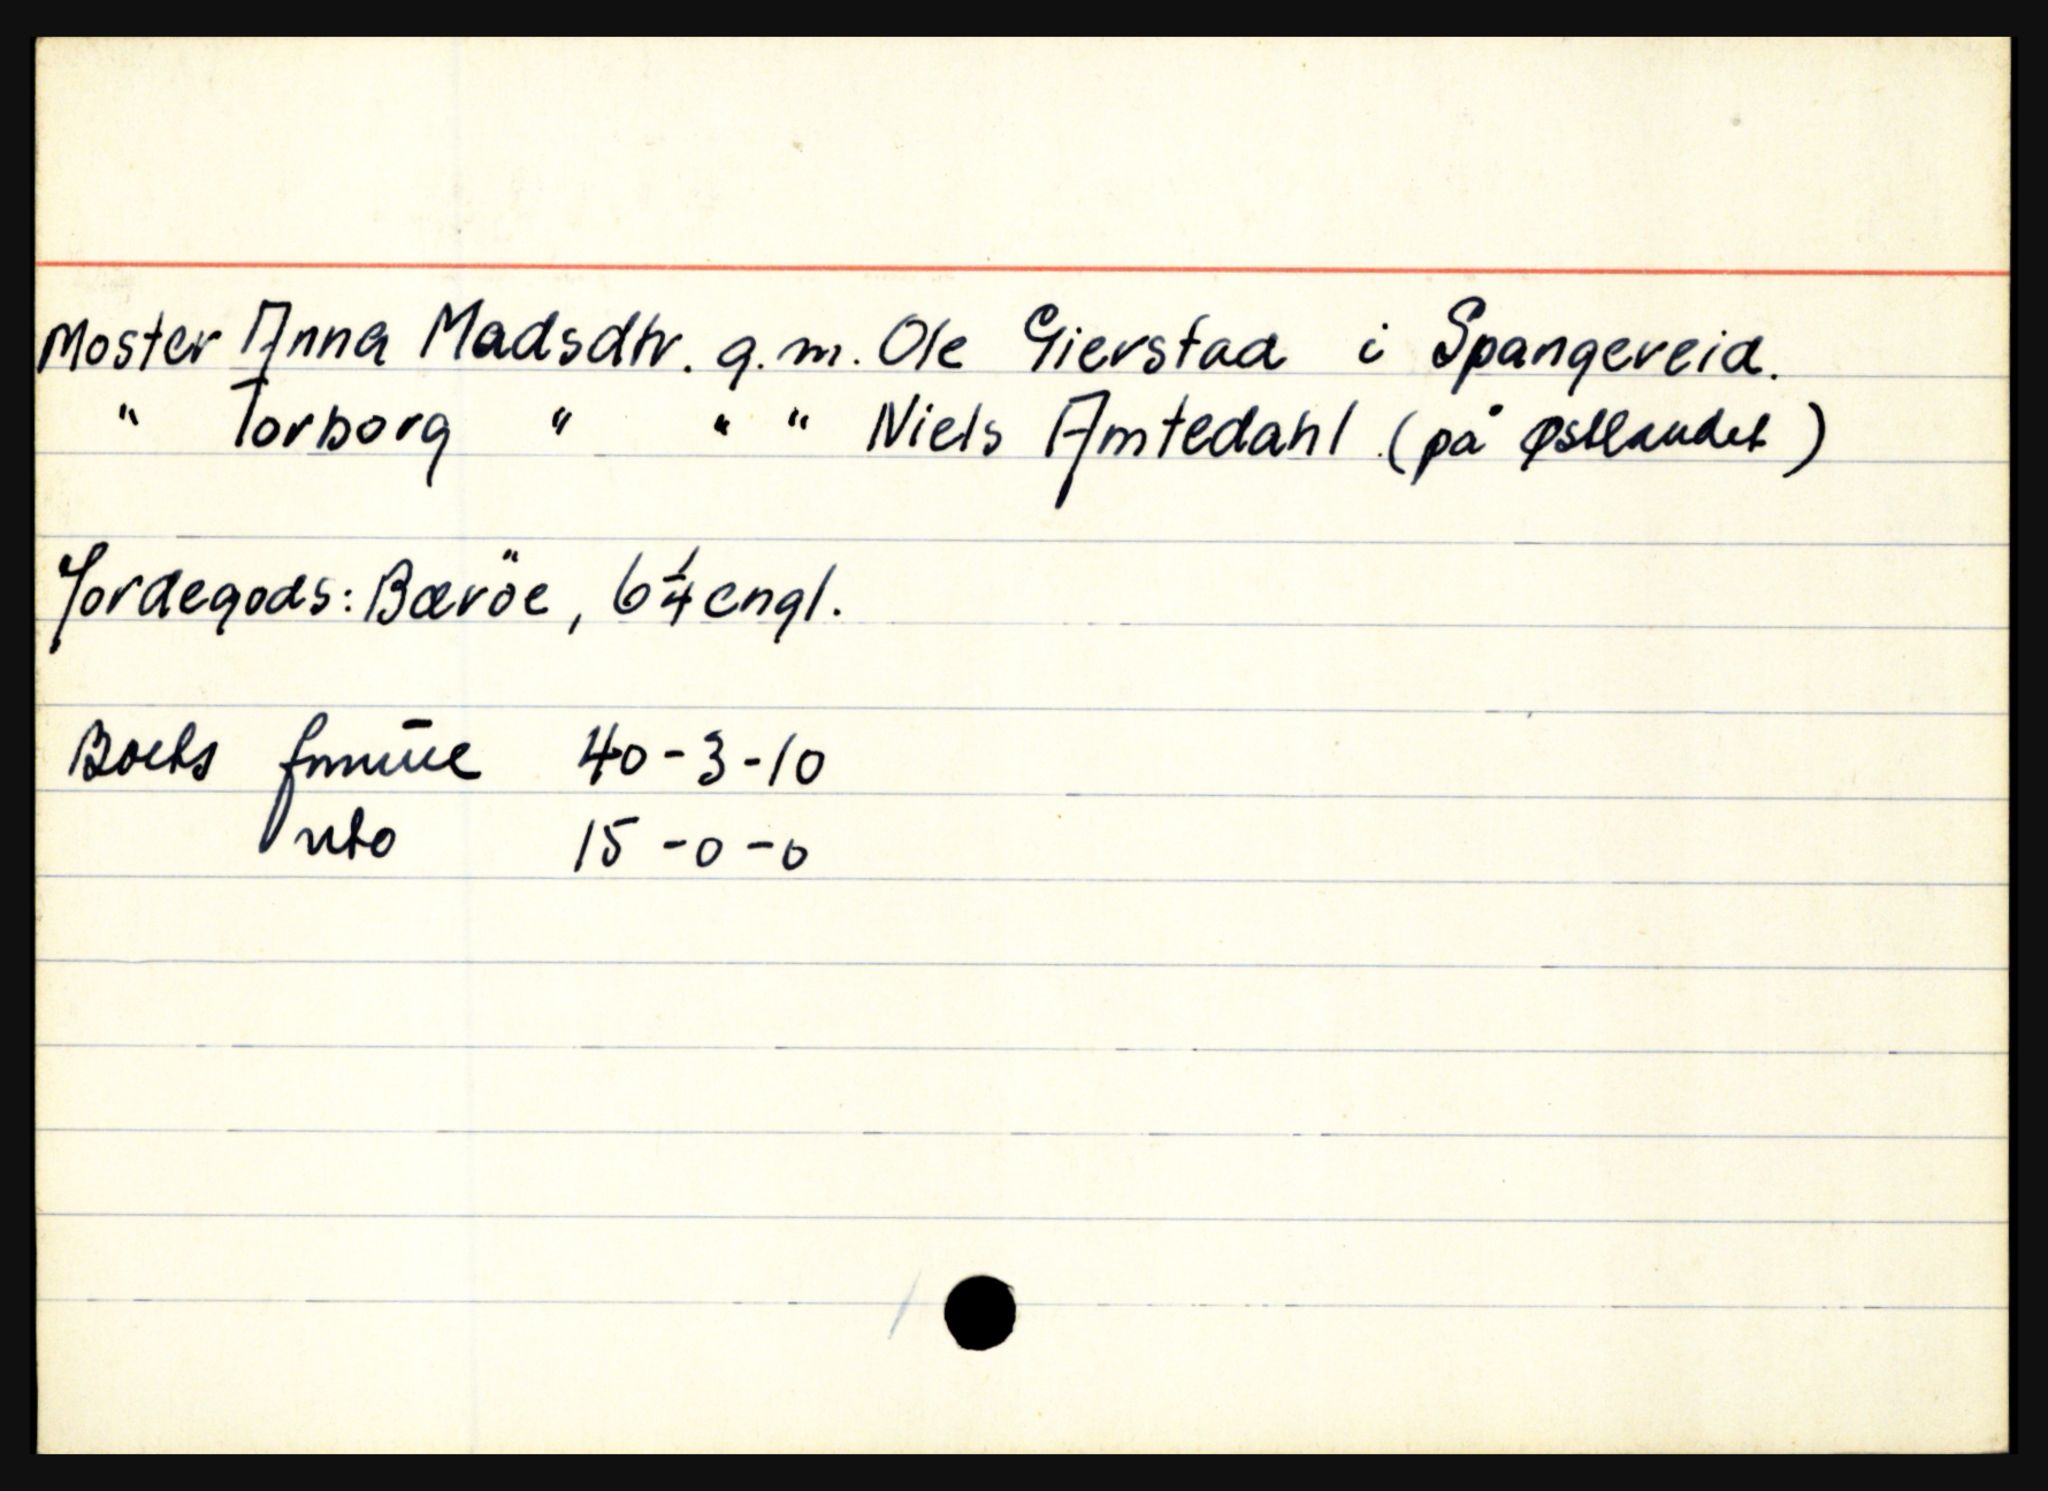 Moster Anna Madsdtr. g.m. Ole Gierstad i Spangereid.
" Torborg " " " Niels Amtedahl (på Østlandet)
Jordegods: Bæröe, 6 1/4 engl.
Boets 40-3-10
15-0-0